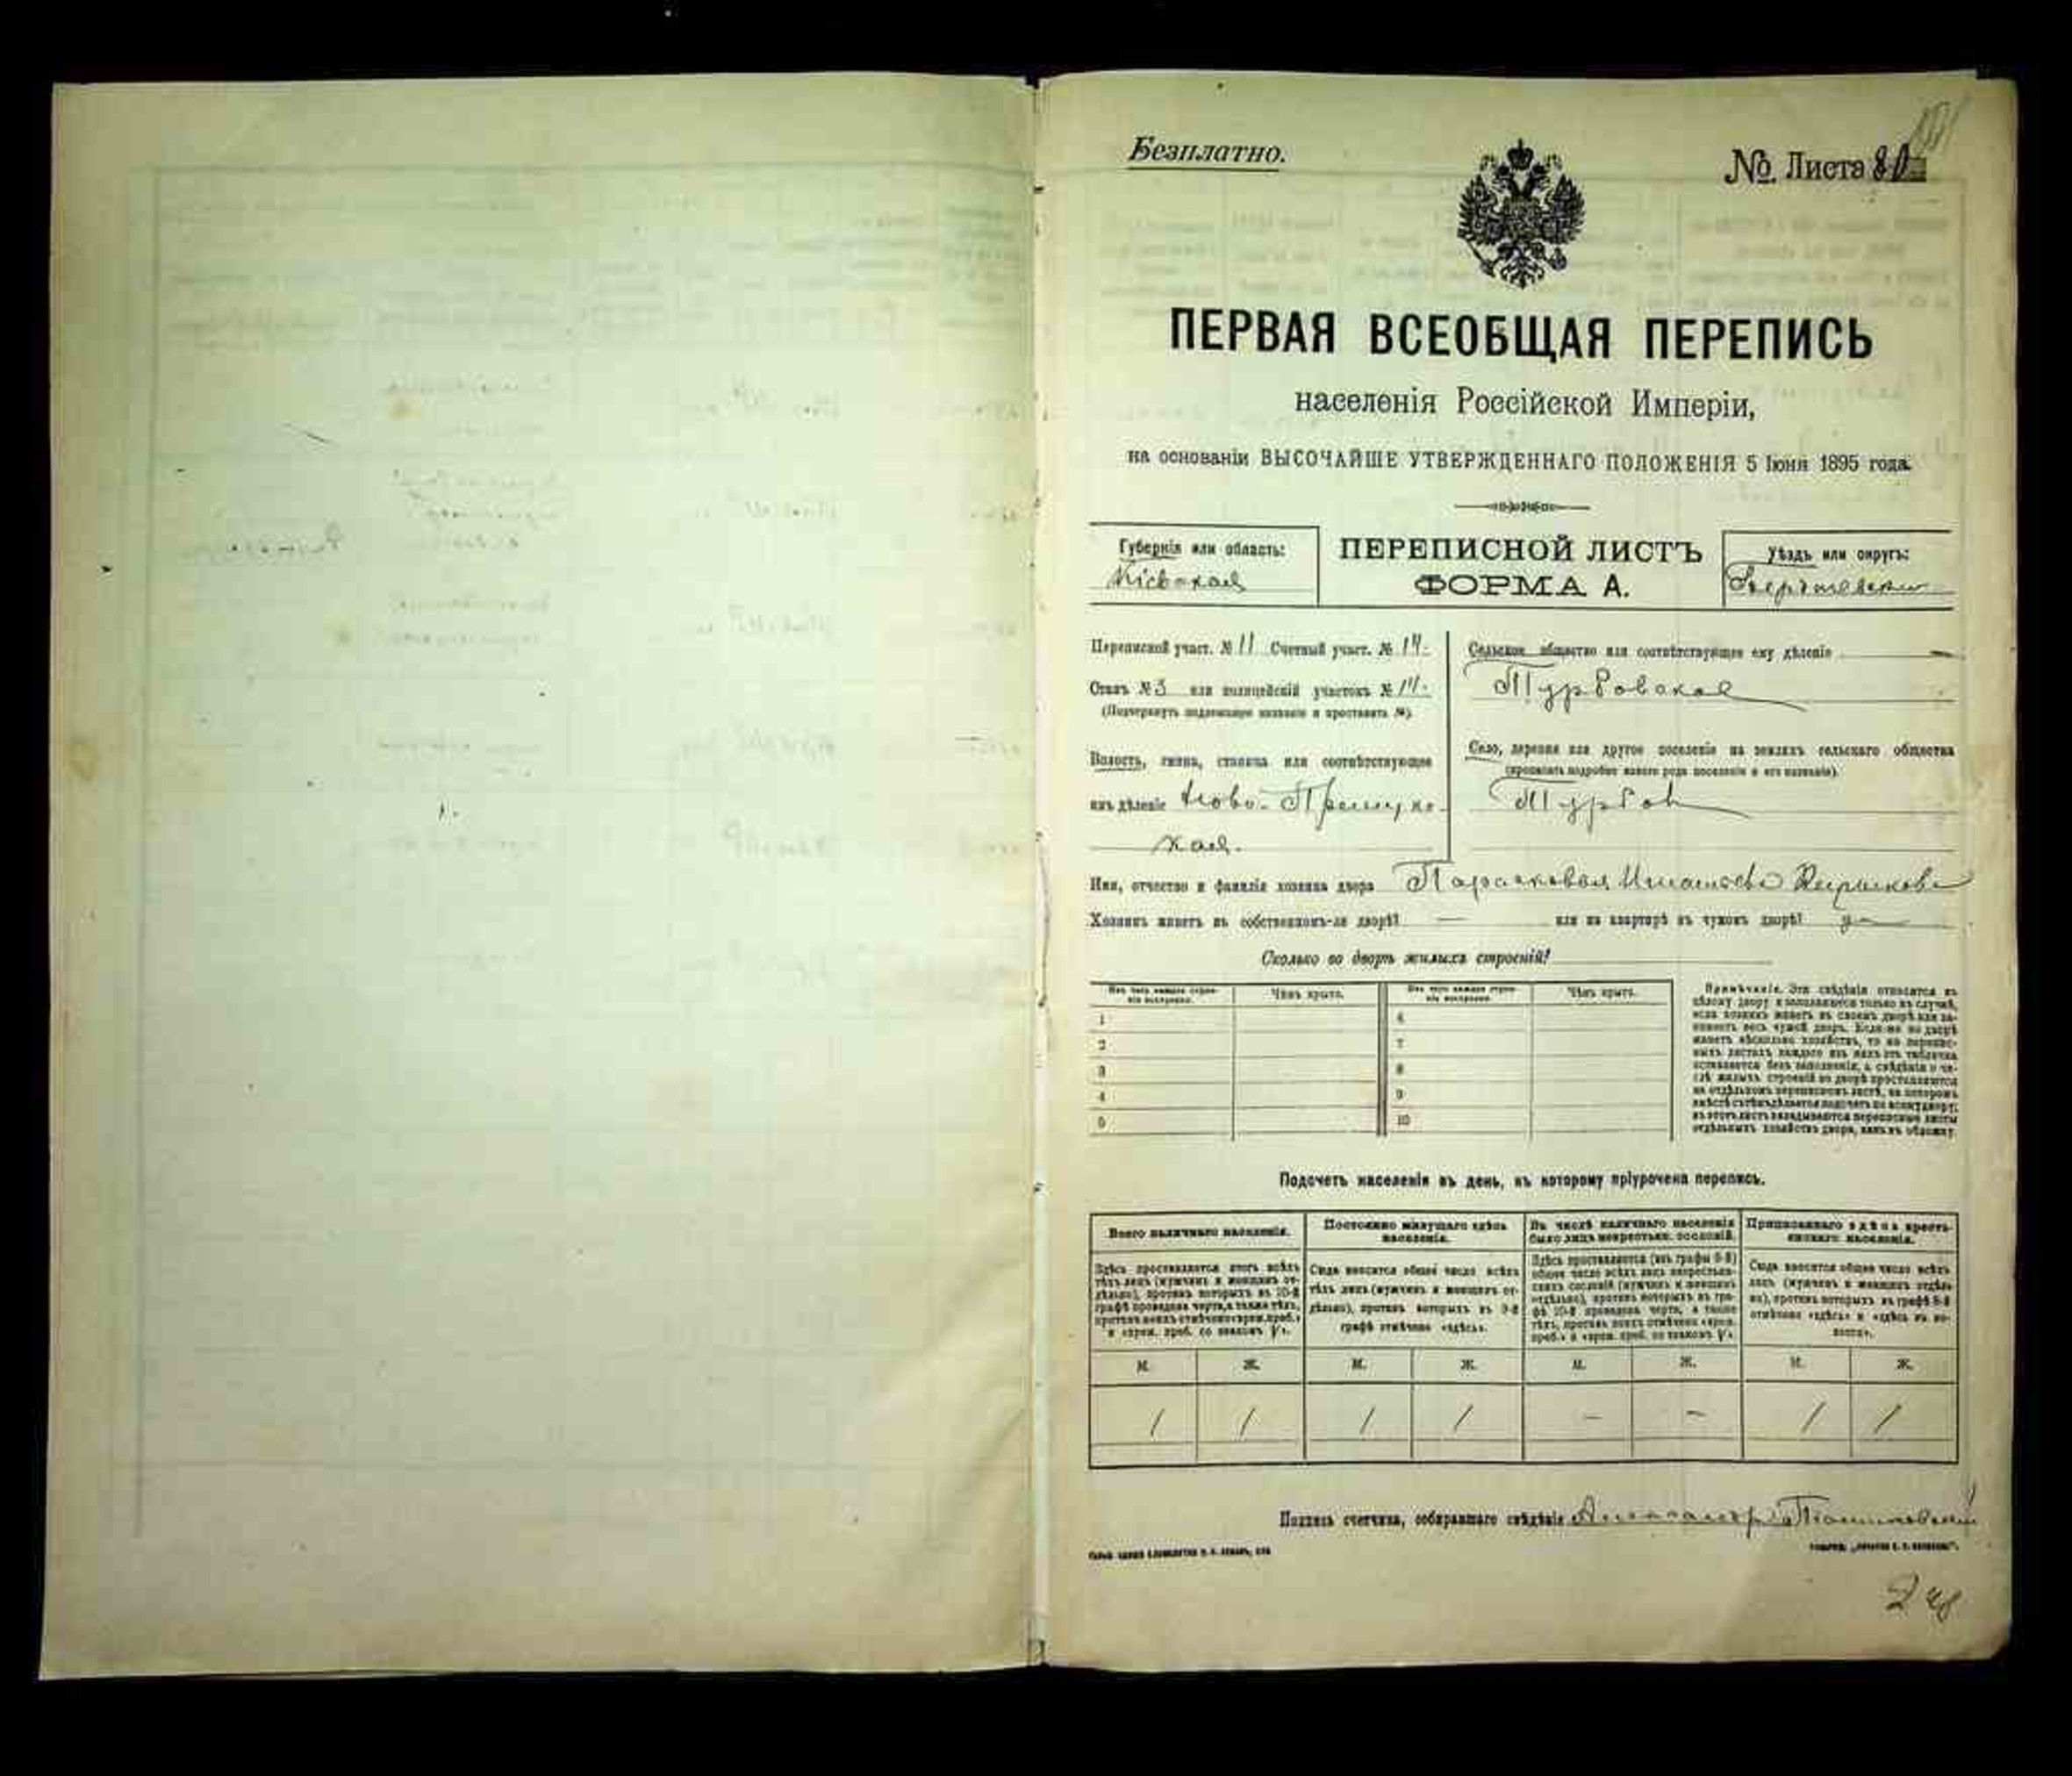 Безплатно.
№ Листа 80
ПЕРВАЯ ВСЕОБЩАЯ ПЕРЕПИСЬ
населенія Россійской Имперіи,
на основаніи ВЫСОЧАЙШЕ УТВЕРЖДЕННАГО ПОЛОЖЕНІЯ 5 Іюня 1895 года.
Губернія или область:
Кіевская
ПЕРЕПИСНОЙ ЛИСТЪ
ФОРМА А.
Уѣздъ или округъ:
Бердичевскій
Переписной участ. № 11 Счетный участ. № 14.
Станъ № 3 или полицейскій участокъ № 14.
(Подчеркнуть надлежащее названіе и проставить №).
Волость, гмина, станица или соотвѣтствующее
имъ дѣленіе Ново-Прилук-
кая.
Сельское общество или соотвѣтствующее ему дѣленіе
Турбовское
Село, деревня или другое поселеніе на земляхъ сельскаго общества
(прописать подробно какого рода поселеніе и его названіе).
Турбов
Имя, отчество и фамилія хозяина двора Парасковья
Хозяинъ живетъ въ собственномъ-ли дворѣ? — или на квартирѣ въ чужомъ дворѣ?
Сколько во дворѣ жилыхъ строеній?
Изъ чего каждое строе-
ніе построено.
Чѣмъ крыто.
Изъ чего каждое строе-
ніе построено.
Чѣмъ крыто.
1 6
2 7
3 8
4 9
5 10
Примѣчаніе. Эти свѣдѣнія относятся къ
цѣлому двору и заполняются только въ случаѣ,
если хозяинъ живетъ въ своемъ дворѣ или за-
нимаетъ весь чужой дворъ. Если-же во дворѣ
живетъ нѣсколько хозяйствъ, то на перепис-
ныхъ листахъ каждаго изъ нихъ эта табличка
оставляется безъ заполненія, а свѣдѣнія о чи-
слѣ жилыхъ строеній во дворѣ проставляются
на отдѣльномъ переписномъ листѣ, на которомъ
вмѣстѣ съ тѣмъ дѣлается подсчетъ по всему двору;
въ этотъ листъ вкладываются переписные листы
отдѣльныхъ хозяйствъ двора, какъ въ обложку.
Подсчетъ населенія въ день, къ которому пріурочена перепись.
Всего наличнаго населенія.
Постоянно живущаго здѣсь
населенія.
Въ числѣ наличнаго населенія
было лицъ некрестьян. сословій.
Приписаннаго здѣсь кресть-
янскаго населенія.
Здѣсь проставляется итогъ всѣхъ
тѣхъ лицъ (мужчинъ и женщинъ от-
дѣльно), противъ которыхъ въ 10-й
графѣ проведена черта, а также тѣхъ,
противъ коихъ отмѣчено «врем. преб.»
и «врем. преб. со знакомъ V».
Сюда вносится общее число всѣхъ
тѣхъ лицъ (мужчинъ и женщинъ от-
дѣльно), противъ которыхъ въ 9-й
графѣ отмѣчено «здѣсь».
Здѣсь проставляется (изъ графы 6-й)
общее число всѣхъ лицъ некрестьян-
скихъ сословій (мужчинъ и женщинъ
отдѣльно), противъ которыхъ въ гра-
фѣ 10-й проведена черта, а также
тѣхъ, противъ коихъ отмѣчено «врем.
преб.» и «врем. преб. со знакомъ V».
Сюда вносится общее число всѣхъ
лицъ (мужчинъ и женщинъ отдѣль-
но), противъ которыхъ въ графѣ 8-й
отмѣчено «здѣсь» и «здѣсь въ во-
лости».
М. Ж. М. Ж. М. Ж. М. Ж.
1 1 1 1 - - 1 1
Подпись счетчика, собиравшаго свѣдѣнія Александръ